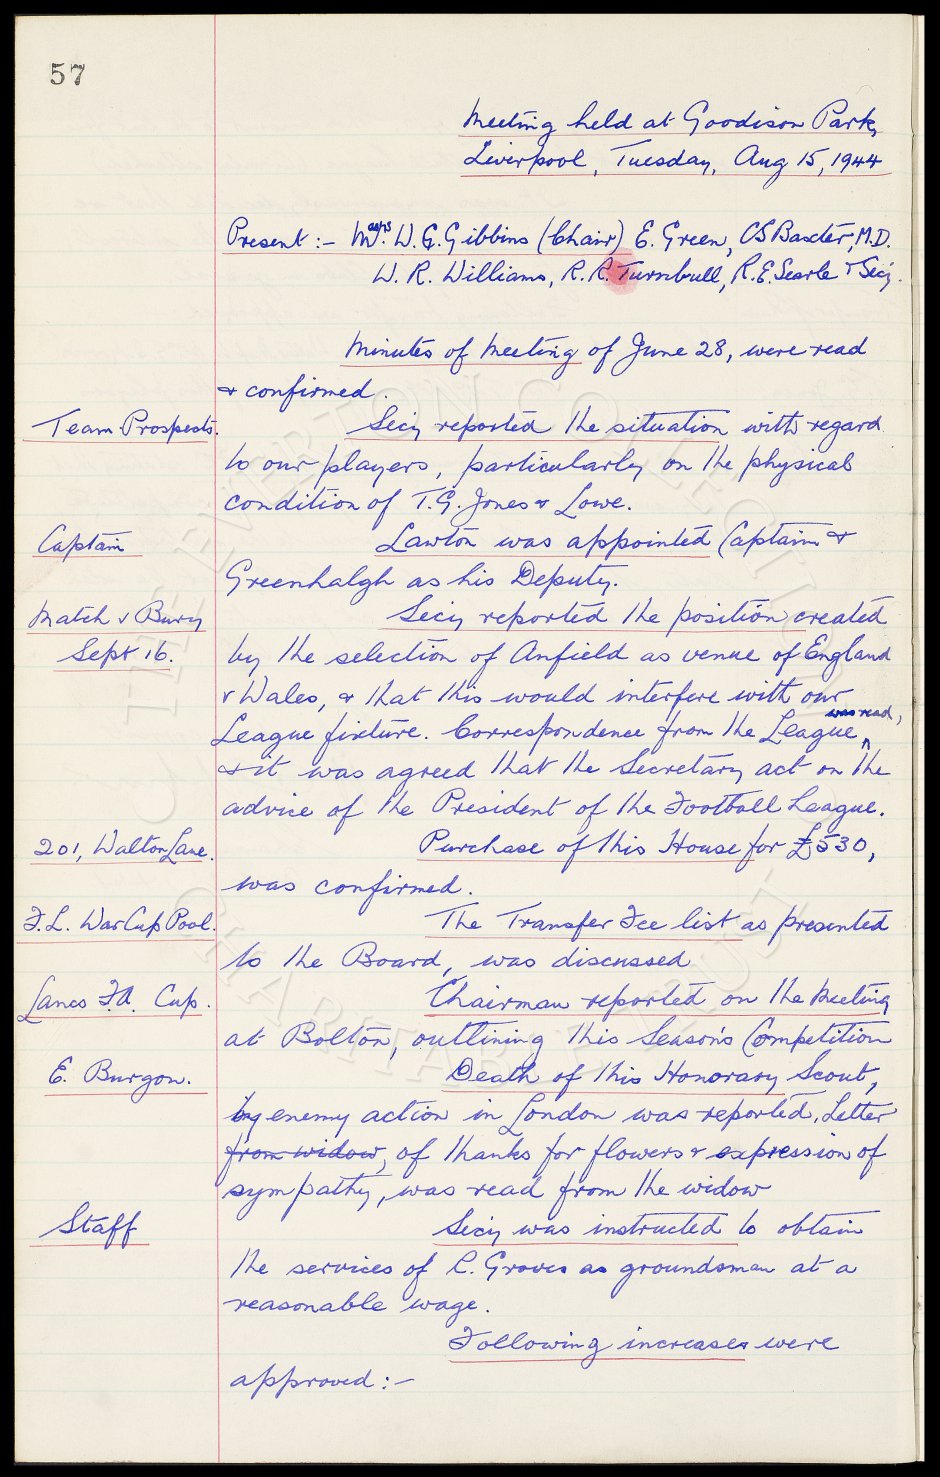 57
Meeting held at Goodison Park,
Liverpool, Tuesday, Aug 15, 1944
Present :- Messrs. W.C. Gibbins (Chair) E. Green, CS Baxter, M.D.
W. R. Williams, R. R. Turnbull, R.E. Searle & Secy.
Minutes of Meeting of June 28, were read
& confirmed.
Team Prospects. Secy reported the situation with regard
to our players, particularly on the physical
condition of T.G. Jones & Lowe.
Captain Lawton was appointed Captain &
Greenhalgh as his Deputy.
Match v Bury Secy reported the position created
Sept 16. by the selection of Anfield as venue of England
v Wales, & that this would interfere with our
League fixture. Correspondence from the League was read,
& it was agreed that the Secretary act on the
advice of the President of the Football League.
201, Walton Lane. Purchase of this House for £530,
was confirmed.
F.L. War Cup Pool. The Transfer Fee list as presented
to the Board, was discussed
Lancs F.A. Cup. Chairman reported on the Meeting
at Bolton, outlining this Season's Competition
E. Burgon. Death of this Honorary Scout,
by enemy action in London was reported. Letter
from widow, of thanks for flowers & expression of
sympathy, was read from the widow
Staff Secy was instructed to obtain
the services of C. Groves as groundsman at a
reasonable wage.
Following increases were
approved :-
THE EVERTON COLLECTION
CHARITABLE TRUST